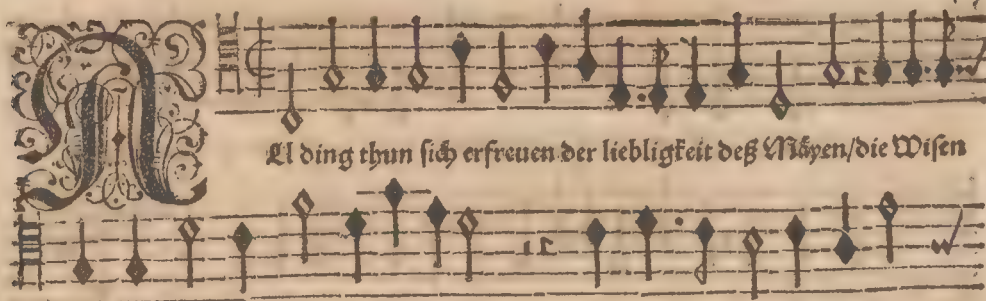 All ding thun sich erfreuen der liebligkeit deß Mäyen/die Wisen